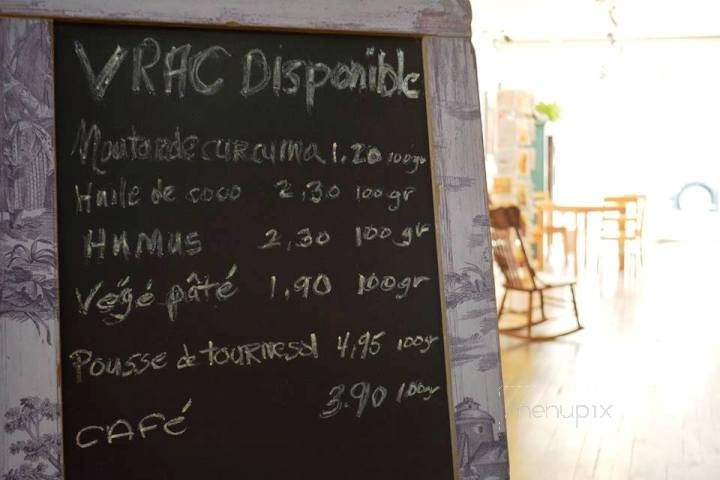 VRAC Disponible
Moutarde curcuma 1.20 100gr
Huile de coco 2,30 100gr
HUMUS 2,30 100gr
Végé pâté 1,90 100gr
Pousse de tournesol 4,95 100gr
CAFÉ 3.90 100gr
menupix